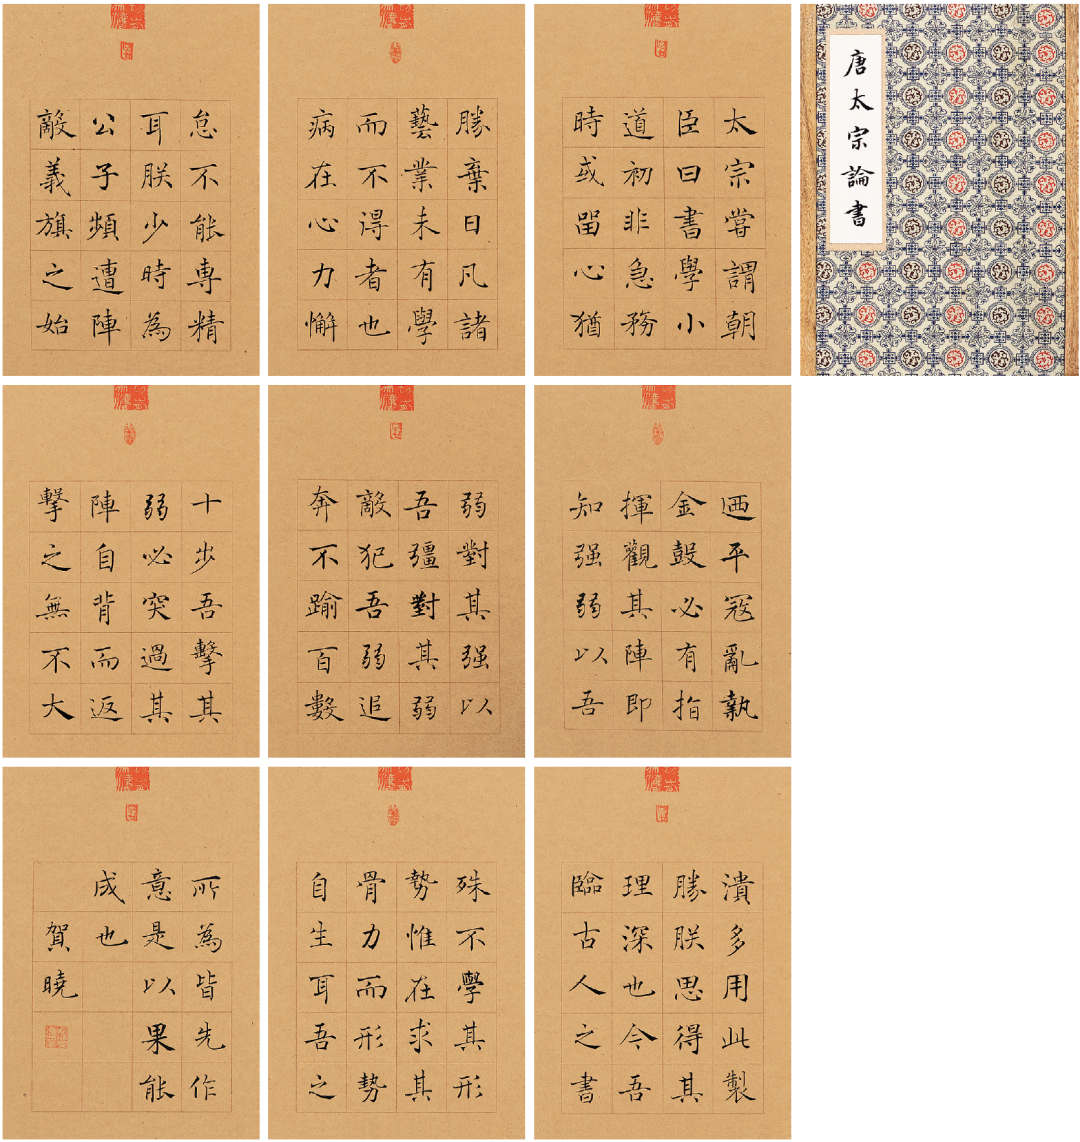 唐太宗論書
太宗嘗謂朝
臣曰書學小
道初非急務
時或留心猶
勝棄日凡諸
藝業未有學
而不得者也
病在心力懈
怠不能専精
耳朕少時為
公子頻遭陣
敵義旗之始
迺平寇亂執
金鼓必有指
揮觀其陣即
知强弱以吾
弱對其强以
吾彊對其弱
敵犯吾弱追
奔不踰百數
十步吾擊其
弱必突過其
陣自背而返
擊之無不大
潰多用此製
勝朕思得其
理深也今吾
臨古人之書
殊不學其形
勢惟在求其
骨力而形勢
自生耳吾之
所為皆先作
意是以果能
成也
賀曉